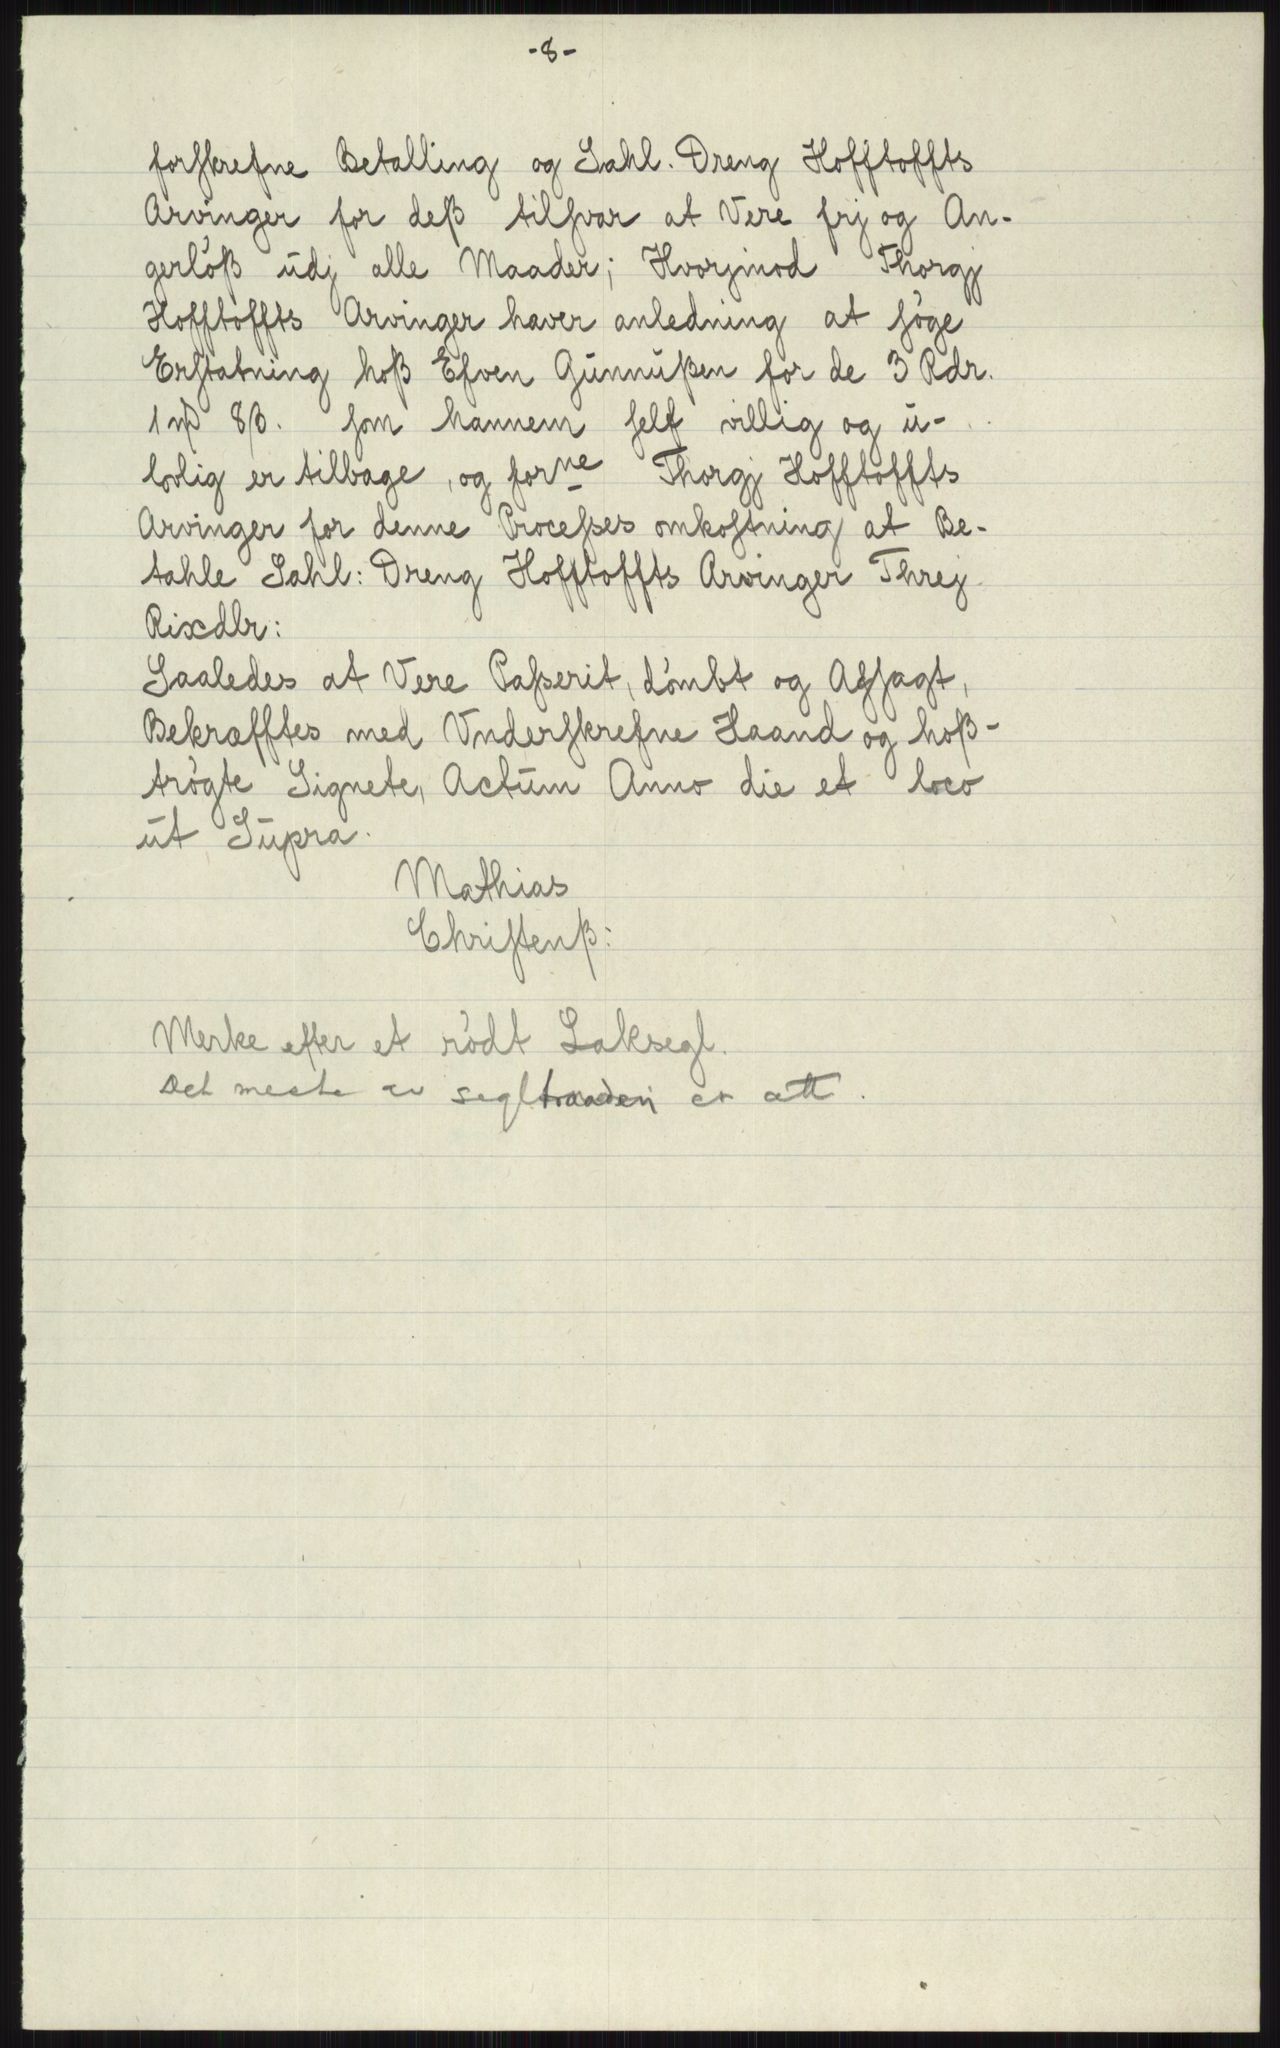 -8-
forskrefne Betalling og Sahl. Dreng Hofftoffts
Arvinger for deß tilsvar at Vere frj og An-
gerlöß üdj alle Maader; Hvorjmod Thorgj
Hofftoffts Arvinger haver anledning at söge
Erstatning hoß Efven Günnüßen for de 3 Rdr.
1 mþ 8 β. som hannem self villig og ü-
lovlig er tilbage, og forne Thorgj Hofftoffts
Arvinger for denne Processes omkostning at Be-
tahle Sahl: Dreng Hofftoffts Arvinger Threj
Rixdlr:
Saaledes at Vere Passerit, dömbt og Afsagt,
Bekræfftes med Vnderskrefne Haand og hoß-
trögte Signete, Actüm Anno die et loco
üt Süpra.
Mathias
Christenß:
Merke efter et rödt Laksegl.
Det meste av segltraaden er att.